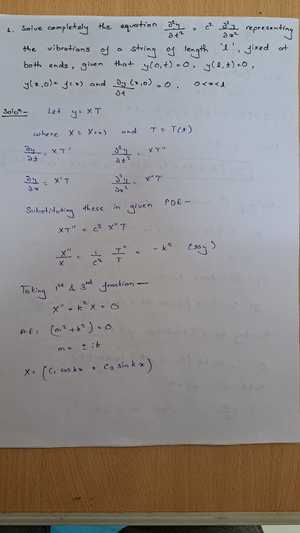 1. Solve completely the equation ∂²y/∂t² = c² ∂²y/∂x² representing
the vibrations of a string of length 'l', fixed at
both ends, given that y(0,t)=0, y(l,t)=0,
y(x,0)= f(x) and ∂y/∂t (x,0) = 0, 0<x<l
Soln:- Let y= XT
where X = X(x) and T = T(t)
∂y/∂t = XT' ∂²y/∂t² = XT''
∂y/∂x = X'T ∂²y/∂x² = X''T
Substituting these in given PDE -
XT'' = c² X''T
X''/X = 1/c² T''/T = -k² (say)
Taking 1st & 3rd fraction -
X'' + k² X = 0
A.E: (m²+k²) = 0
m = ± ik
X = (C₁ cos kx + C₂ sin kx)